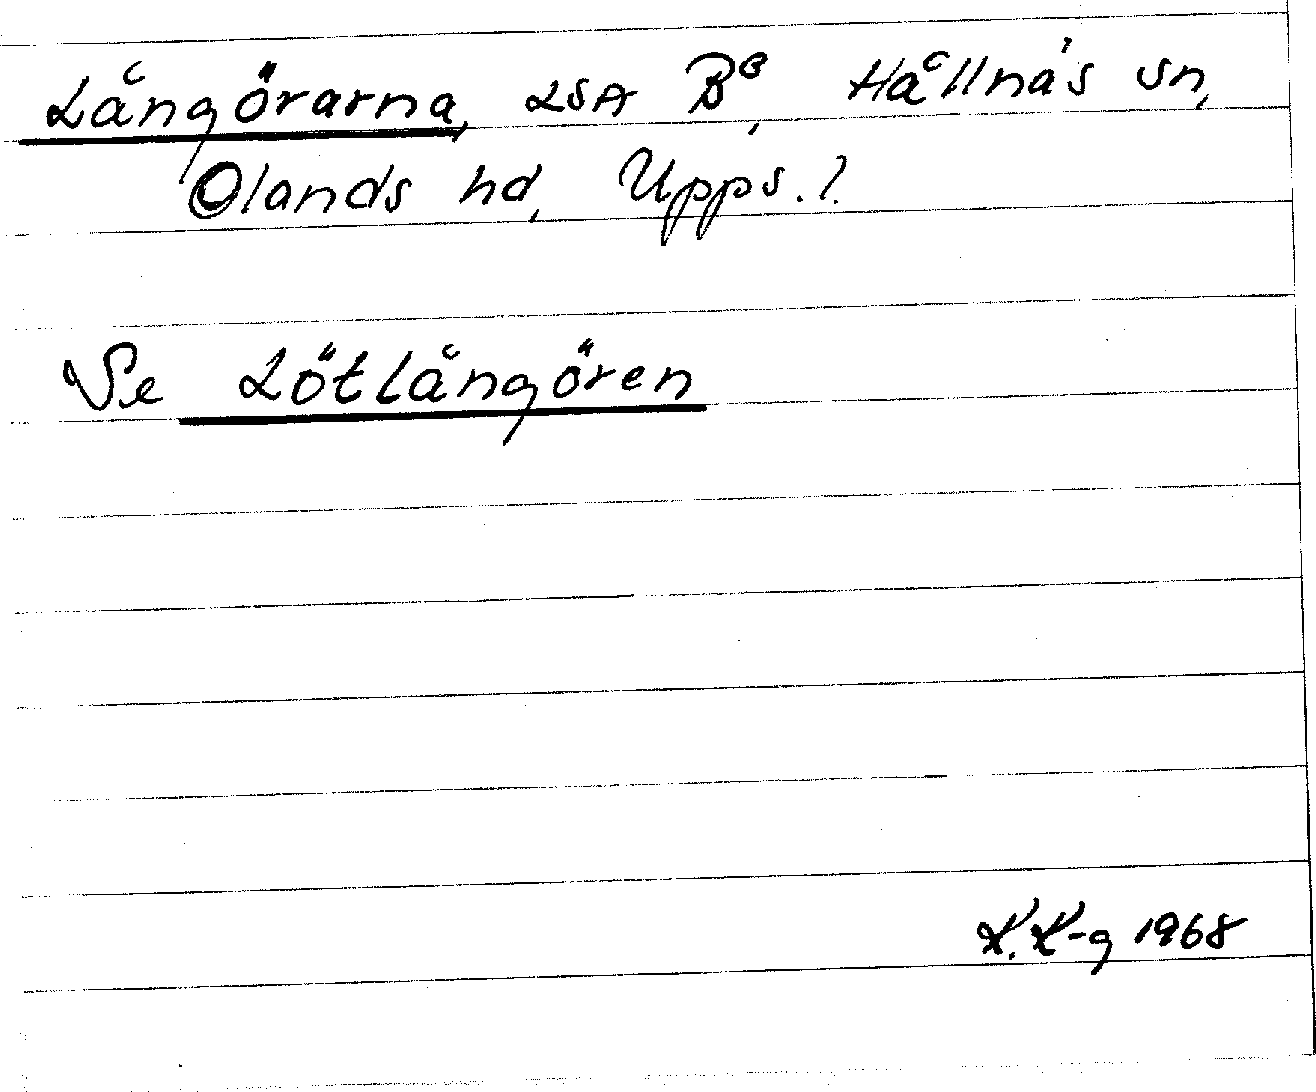 Långörarna, LSA B⁸, Hållnäs sn,
Olands hd, Upps. l.
Se Lötlångören
K. K-g 1968